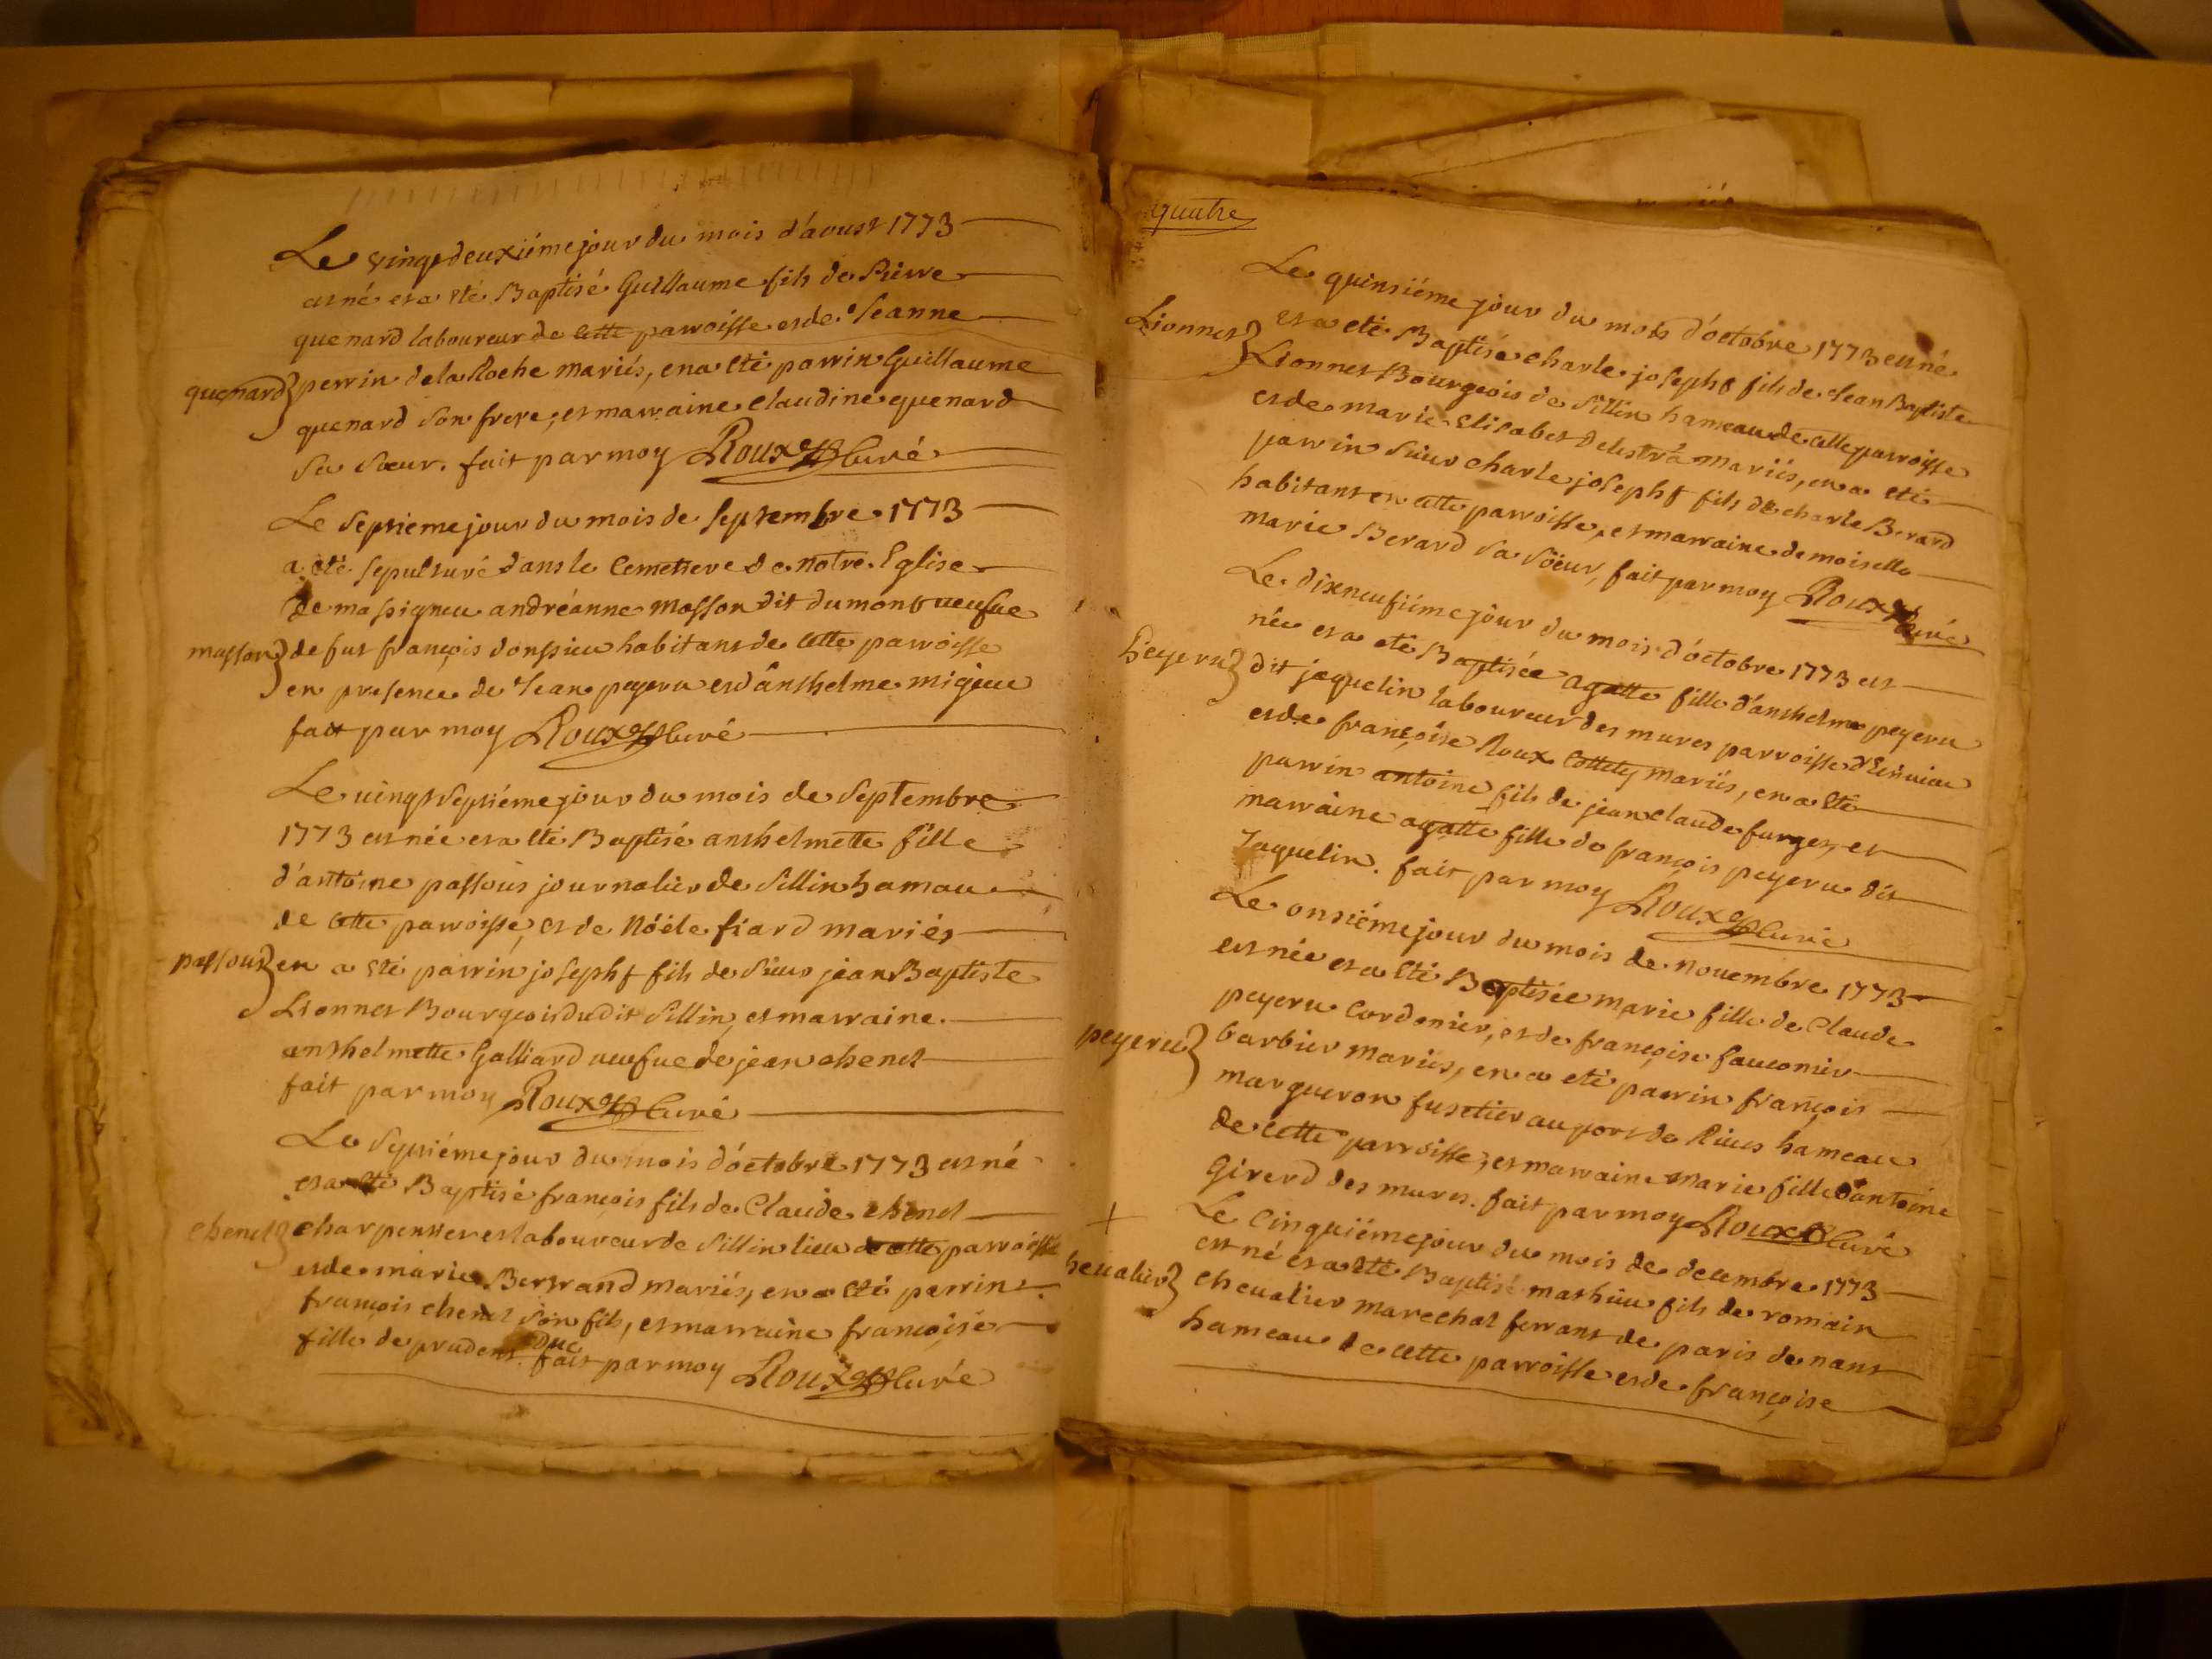 Le vingtdeuxiéme jour du mois d'aoust 1773
est né et a eté Baptisé Guillaume fils de Pierre
quenard laboureur de cette parroisse et de Jeanne
quenard
perrin de la Roche mariés, en a eté parrin Guillaume
quenard son frere, et marraine claudine quenard
sa sœur. fait par moy Roux Curé
Le septieme jour du mois de septembre 1773
a eté sepulturé dans le Cemetiere de notre Eglise
de massigneu andréanne masson dit dumont veufue
masson
de fut françois donssieu habitant de cette parroisse
en presence de Jean peyeru et d'anthelme migieu
fait par moy Roux Curé
Le vingt septiéme jour du mois de septembre
1773 est née et a eté Baptisé anthelmette fille
d'antoine passous journalier de Sillin hamau
de cette parroisse, et de Nöéle fiard mariés
passous
en a eté parrin josepht fils de sieur jean Baptiste
Lionnet Bourgeois dudit Sillin, et marraine
anthelmette Galliard veufue de jean chenet
fait par moy Roux Curé
Le septiéme jour du mois d'óctobre 1773 est né
et a eté Baptisé françois fils de Claude chenet
chenet
charpentier et laboureur de Sillin lieu de cette parroisse
et de marie Bertrand mariés, en a eté parrin
françois chenet son fils, et marraine françoise
fille de prudent Duc
fait par moy Roux Curé
quatre
Le quinsiéme jour du mois d'óctobre 1773 est né
et a eté Baptisé charle josepht fils de Jean Baptiste
Lionnet
Lionnet Bourgeois de Sillin hameau de cette parroisse
et de marie Elisabet Delestra mariés, en a eté
parrin sieur charle josepht fils de charle Berard
habitant en cette parroisse, et marraine demoiselle
marie Berard sa söeur, fait par moy Roux Curé
Le dixneufiéme jour du mois d'óctobre 1773 est
née et a eté Baptisée agatte fille d'anthelme peyeru
Peyeru
dit jaquelin laboureur des mures parroisse
et de françoise Roux mariés, en a eté
parrin antoine fils de jean claude furger, et
marraine agatte fille de françois peyeru dit
Jaquelin. fait par moy Roux Curé
Le onsiéme jour du mois de novembre 1773
est née et a eté Baptisée marie fille de Claude
peyeru Cordonier, et de françoise fauconier
peyeru
barbier mariés, en a eté parrin françois
margueron fusetier au port de Rives hameau
de cette parroisse, et marraine marie fille d'antoine
Girerd des mures. fait par moy Roux Curé
+
Le Cinquiéme jour du mois de decembre 1773
est né et a eté Baptisé mathieu fils de romain
hevalier
chevalier marechal ferrant de paris de nant
hameau de cette parroisse et de françoise